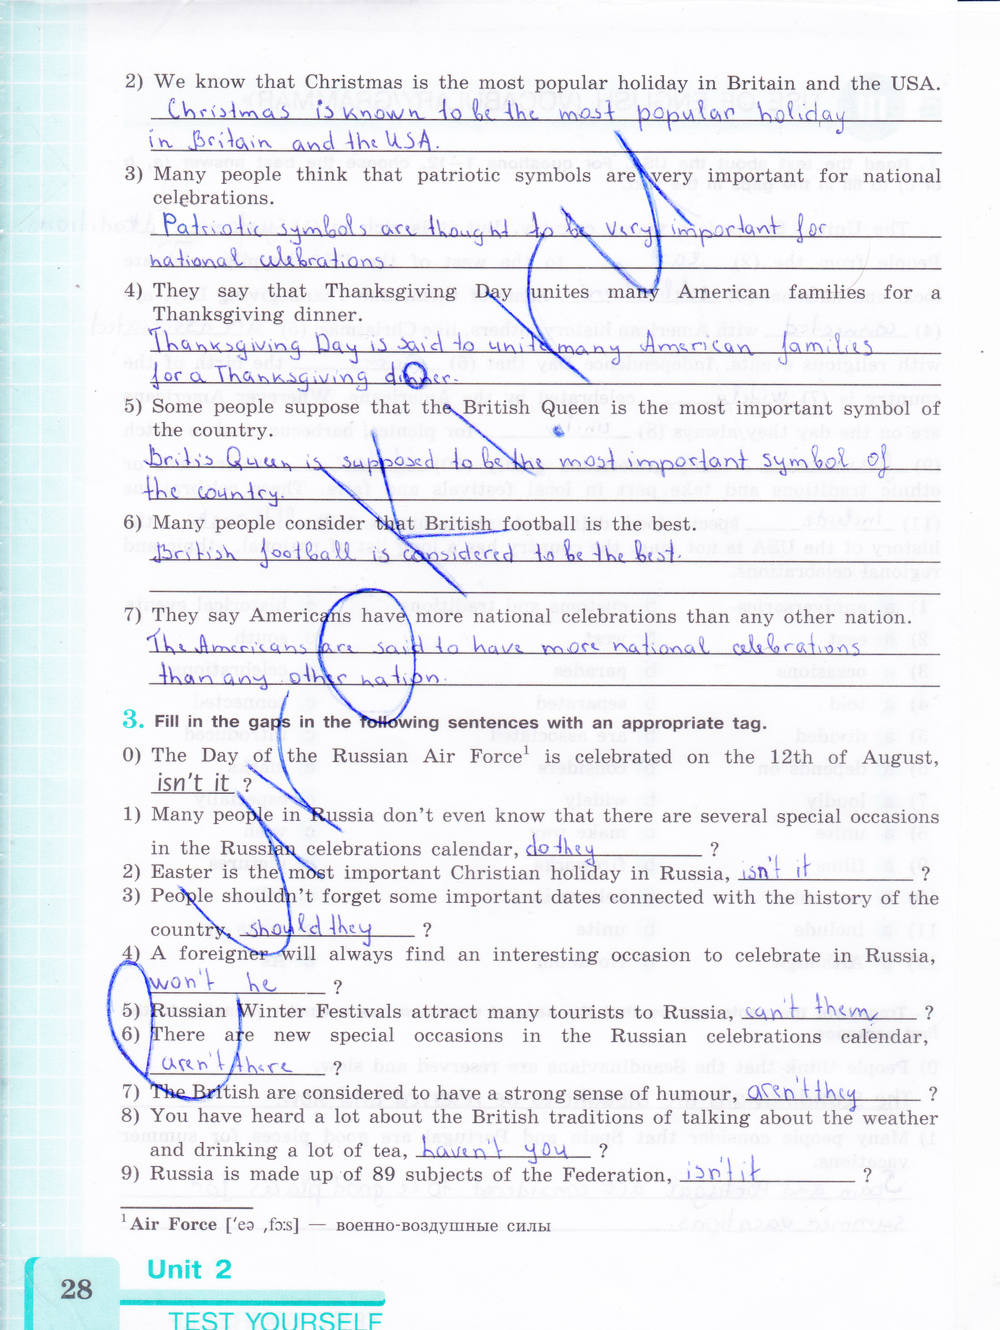 2) We know that Christmas is the most popular holiday in Britain and the USA.
Christmas is known to be the most popular holiday
in Britain and the USA.
3) Many people think that patriotic symbols are very important for national
celebrations.
Patriotic symbols are thought to be very important for
national celebrations.
4) They say that Thanksgiving Day unites many American families for a
Thanksgiving dinner.
Thanksgiving Day is said to unite many American families
for a Thanksgiving dinner.
5) Some people suppose that the British Queen is the most important symbol of
the country.
Britis Queen is supposed to be the most important symbol of
the country.
6) Many people consider that British football is the best.
British football is considered to be the best.
7) They say Americans have more national celebrations than any other nation.
The Americans are said to have more national celebrations
than any other nation.
3. Fill in the gaps in the following sentences with an appropriate tag.
0) The Day of the Russian Air Force¹ is celebrated on the 12th of August,
isn't it ?
1) Many people in Russia don't even know that there are several special occasions
in the Russian celebrations calendar, do they ?
2) Easter is the most important Christian holiday in Russia, isn't it ?
3) People shouldn't forget some important dates connected with the history of the
country, should they ?
4) A foreigner will always find an interesting occasion to celebrate in Russia,
won't he ?
5) Russian Winter Festivals attract many tourists to Russia, can't them ?
6) There are new special occasions in the Russian celebrations calendar,
aren't there ?
7) The British are considered to have a strong sense of humour, aren't they ?
8) You have heard a lot about the British traditions of talking about the weather
and drinking a lot of tea, haven't you ?
9) Russia is made up of 89 subjects of the Federation, isn't it ?
¹ Air Force ['eə ,fɔ:s] — военно-воздушные силы
Unit 2
28
TEST YOURSELF